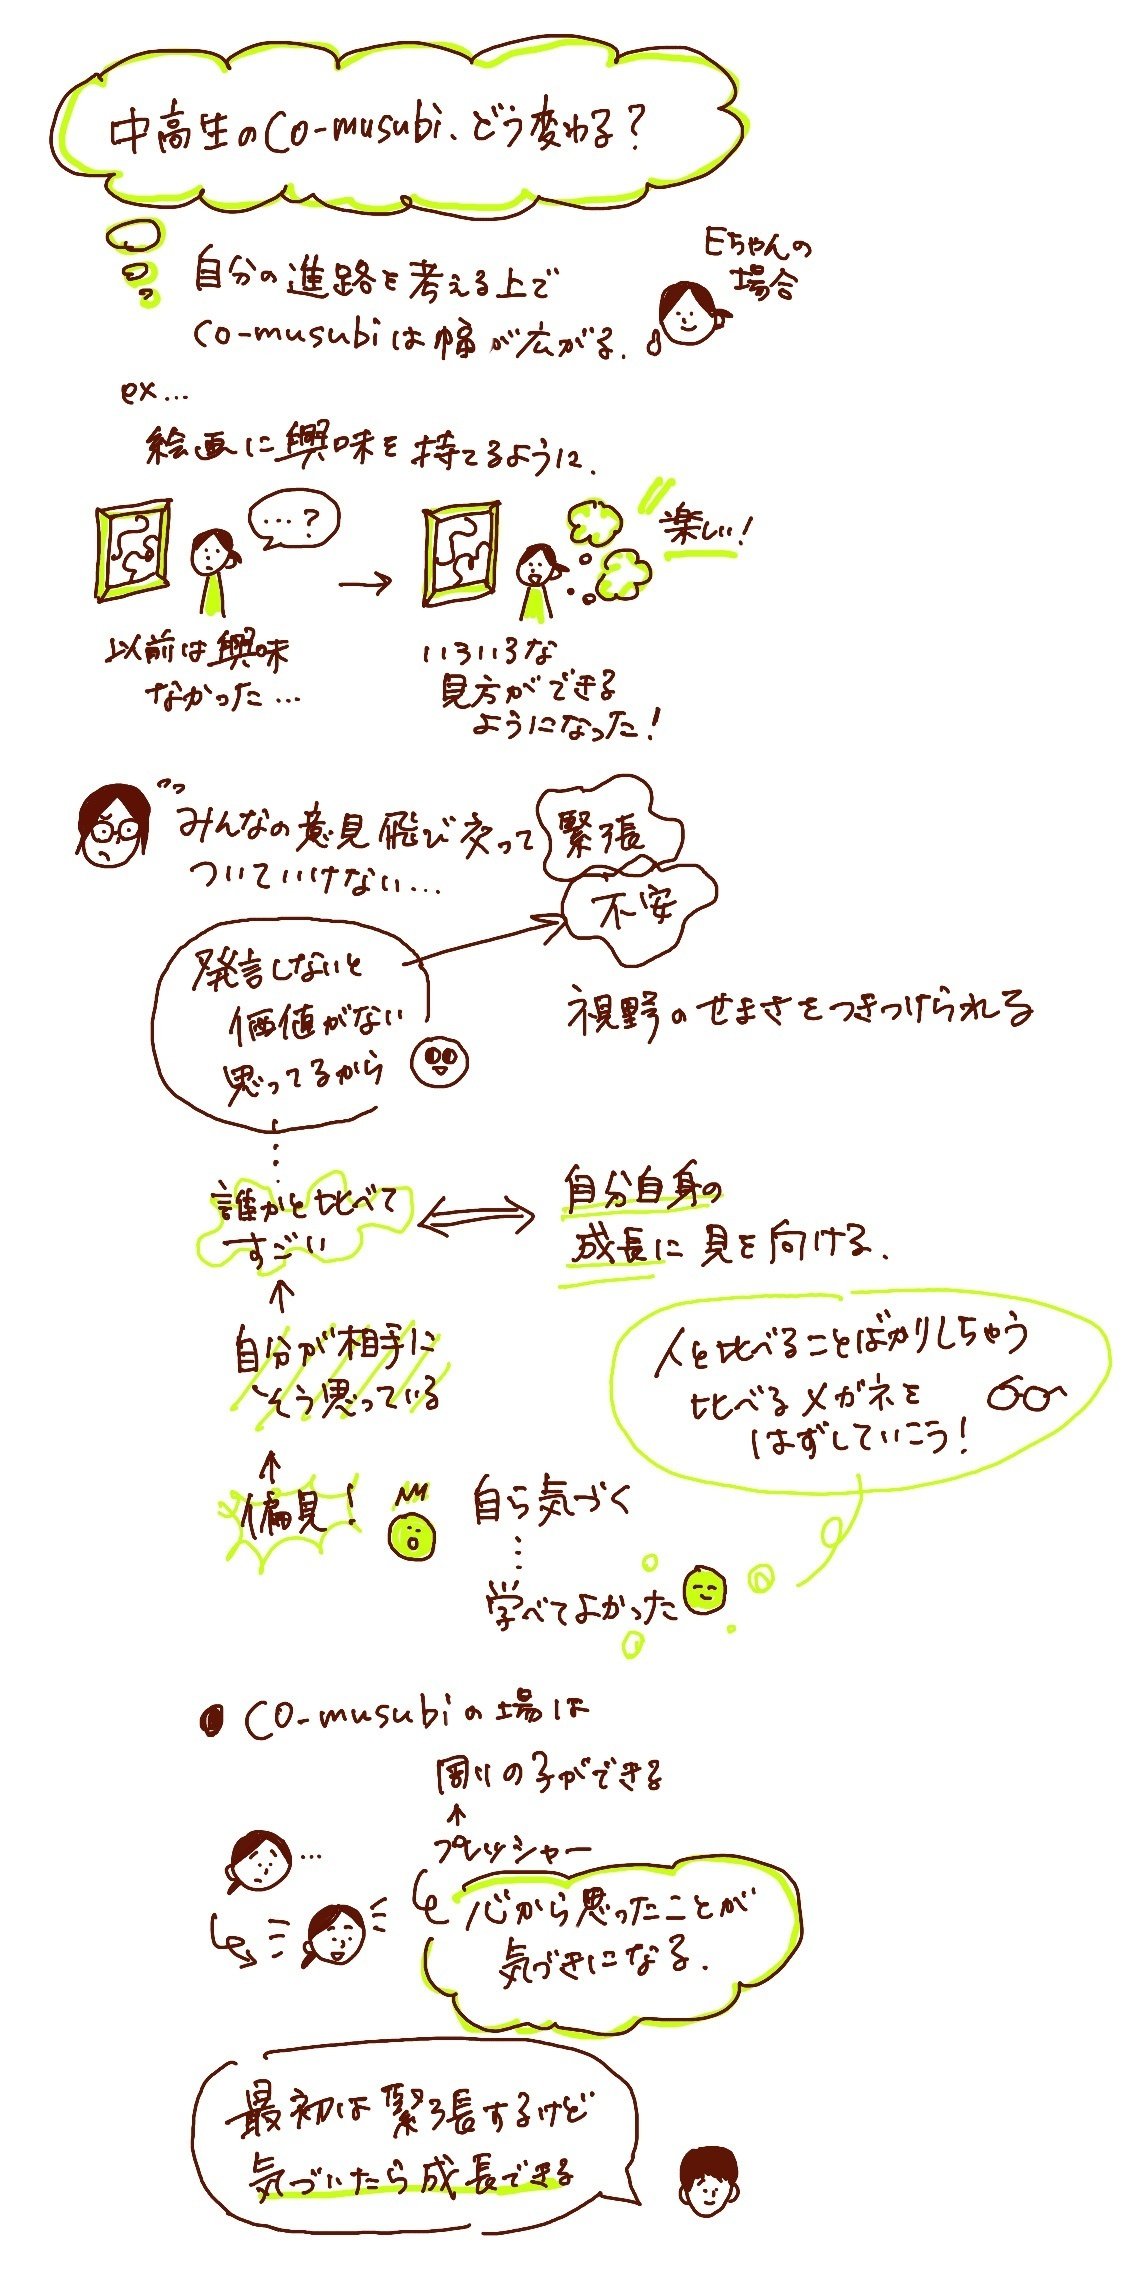 中高生のco-musubi、どう変わる?
Eちゃんの
場合
自分の進路を考える上で
co-musubiは幅が広がる.
ex...
絵画に興味を持てるように.
...?
楽しい!
以前は興味
なかった...
いろいろな
見方ができる
ようになった!
みんなの意見飛び交って
ついていけない...
緊張
不安
発言しないと
価値がない
思ってるから
視野のせまさをつきつけられる
誰かと比べて
すごい
自分自身の
成長に見を向ける.
自分が相手に
そう思っている
人と比べることばかりしちゃう
比べるメガネを
はずしていこう!
偏見!
自ら気づく
学べてよかった
co-musubiの場は
周りの子ができる
プレッシャー
...
心から思ったことが
気づきになる.
最初は緊張するけど
気づいたら成長できる